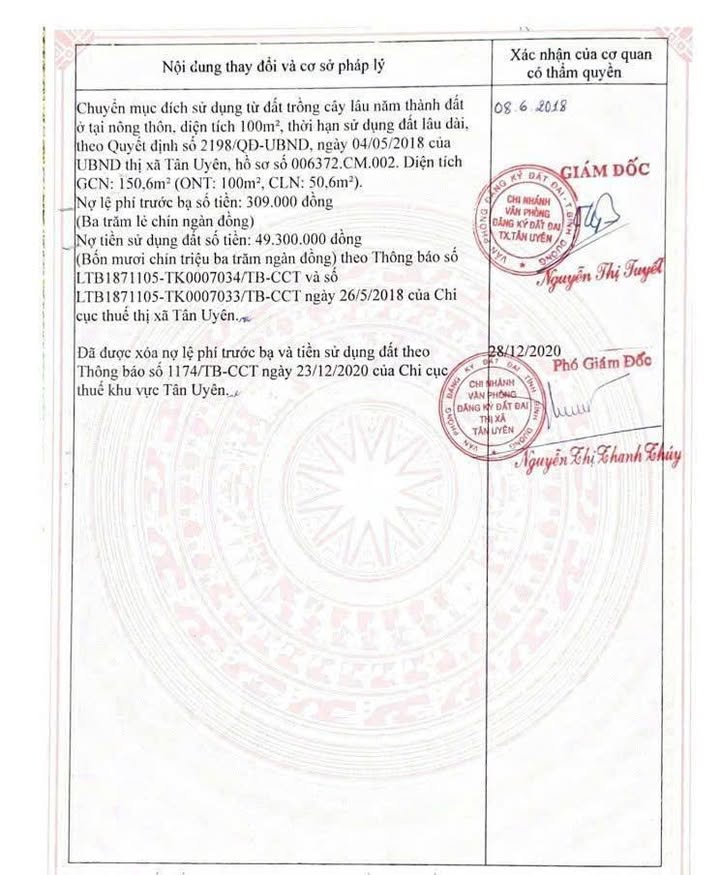 Nội dung thay đổi và cơ sở pháp lý
Xác nhận của cơ quan
có thẩm quyền
Chuyển mục đích sử dụng từ đất trồng cây lâu năm thành đất
ở tại nông thôn, diện tích 100m², thời hạn sử dụng đất lâu dài,
theo Quyết định số 2198/QĐ-UBND, ngày 04/05/2018 của
UBND thị xã Tân Uyên, hồ sơ số 006372.CM.002. Diện tích
GCN: 150,6m² (ONT: 100m², CLN: 50,6m²).
Nợ lệ phí trước bạ số tiền: 309.000 đồng
(Ba trăm lẻ chín ngàn đồng)
Nợ tiền sử dụng đất số tiền: 49.300.000 đồng
(Bốn mươi chín triệu ba trăm ngàn đồng) theo Thông báo số
LTB1871105-TK0007034/TB-CCT và số
LTB1871105-TK0007033/TB-CCT ngày 26/5/2018 của Chi
cục thuế thị xã Tân Uyên.
08.6.2018
GIÁM ĐỐC
VĂN PHÒNG ĐĂNG KÝ ĐẤT ĐAI - T. BÌNH DƯƠNG
CHI NHÁNH
VĂN PHÒNG
ĐĂNG KÝ ĐẤT ĐAI
TX.TÂN UYÊN
Nguyễn Thị Tuyết
Đã được xóa nợ lệ phí trước bạ và tiền sử dụng đất theo
Thông báo số 1174/TB-CCT ngày 23/12/2020 của Chi cục
thuế khu vực Tân Uyên.
28/12/2020
Phó Giám Đốc
VĂN PHÒNG ĐĂNG KÝ ĐẤT ĐAI TỈNH BÌNH DƯƠNG
CHI NHÁNH
VĂN PHÒNG
ĐĂNG KÝ ĐẤT ĐAI
THỊ XÃ
TÂN UYÊN
Nguyễn Thị Thanh Thúy